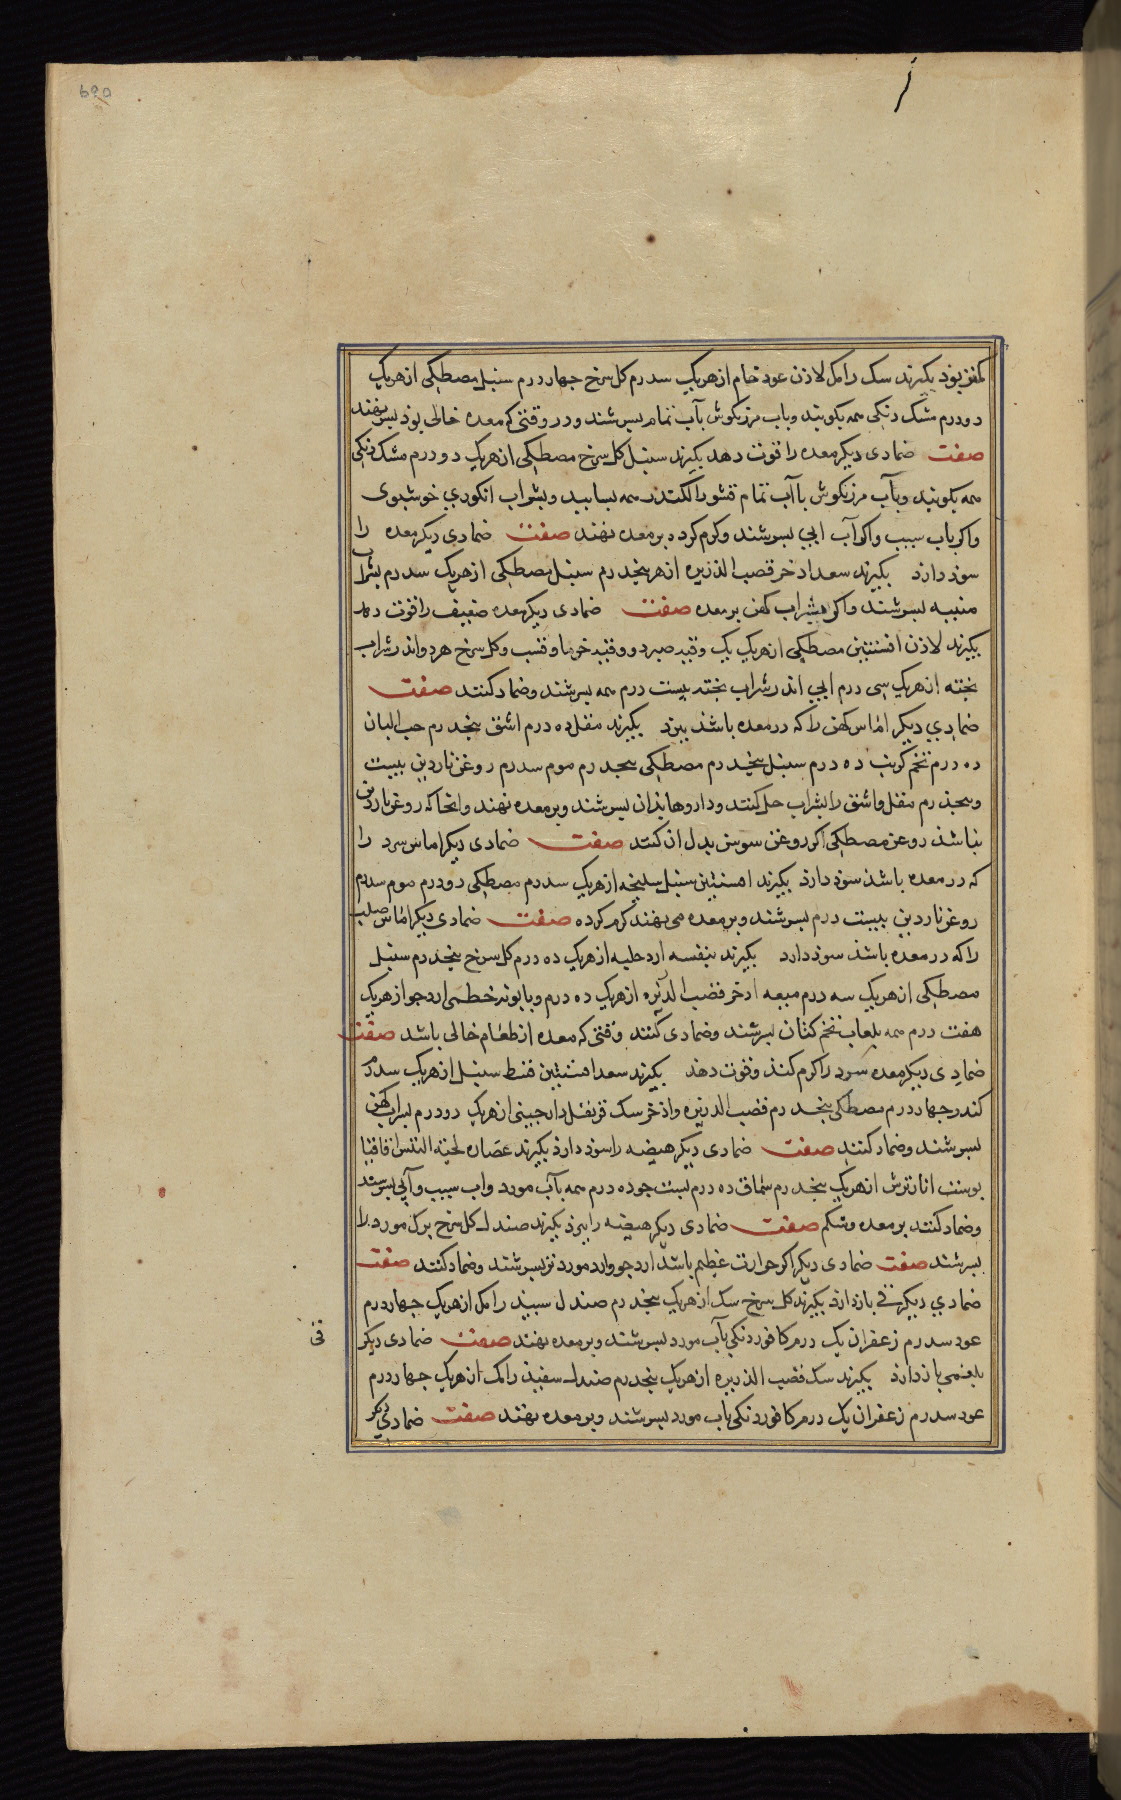 کهن بوذ بکیرند سک رامک لاذن عود خام از هریک سدرم کل سرخ جهاردرم سنبل مصطکی از هریک
دودرم مشک دنکی همه بکوبند وباب مرزنکوش بآب نمام بسرشند ودر وقتی که معده خالی بوذ بر نهند
صفت ضمادی دیکر معده را قوت دهد بکیرند سنبل کل سرخ مصطکی از هریک دودرم مشک دنکی
همه بکوبند وبآب مرزنکوش باآب نمام قشور الکندر همه بسایند وبشراب انکوری خوشبوی
واکر باب سیب واکر آب ابی بسرشند وکرم کرده بر معده نهند صفت ضمادی دیکر معده را
سوذ دارذ بکیرند سعد اذخر قصب الذریره از هر پنجدرم سنبل مصطکی از هریک سدرم بشراب
میبه بسرشند واکر بشراب کهن بر معده صفت ضمادی دیکر معده ضعیف را قوت دهد
بکیرند لاذن افسنتین مصطکی از هریک یک وقیه صبر دو وقیه خرما وقسب وکل سرخ هر دو اندر شراب
بخته از هریک سی درم ابی اندر شراب بخته بیست درم همه بسرشند وضماد کنند صفت
ضمادی دیکر اماس کهن را که در معده باشذ ببرذ بکیرند مقل ده درم اشق پنجدرم حب البان
ده درم تخم کرنب ده درم سنبل پنجدرم مصطکی پنجدرم موم سدرم روغن ناردین بیست
وپنجدرم مقل واشق را بشراب حل کنند وداروها بذان بسرشند وبر معده نهند وانجا که روغن ناردین
نباشذ روغن مصطکی اکر روغن سوسن بدل ان کنند صفت ضمادی دیکر اماس سرد را
که در معده باشذ سوذ دارذ بکیرند افسنتین سنبل سلیخه از هریک سدرم مصطکی دودرم موم سدرم
روغن ناردین بیست درم بسرشند وبر معده می نهند کرم کرده صفت ضمادی دیکر اماس صلب
را که در معده باشذ سوذ دارد بکیرند بنفسه ارد حلبه از هریک ده درم کل سرخ پنجدرم سنبل
مصطکی از هریک سه درم میعه اذخر قصب الذریره از هریک ده درم وبابونه خطمی ارد جو از هریک
هفت درم همه بلعاب تخم کتان بسرشند وضمادی کنند وقتی که معده از طعام خالی باشد صفت
ضمادی دیکر معده سرد را کرم کنذ وقوت دهذ بکیرند سعد افسنتین قسط سنبل از هریک سدرم
کندر جهاردرم مصطکی پنجدرم قصب الذریره واذخر سک قرنفل دارجینی از هریک دودرم بشراب کهن
بسرشند وضماد کنند صفت ضمادی دیکر هیضه را سوذ دارذ بکیرند عصاره لحیة التیس اقاقیا
بوست انار ترش از هریک پنجدرم سماق ده درم بست جو ده درم همه بآب مورد واب سیب وآبی بسرشند
وضماد کنند بر معده وشکم صفت ضمادی دیکر هیضه را ببرذ بکیرند صندل کل سرخ برک مورد
بسرشند صفت ضمادی دیکر اکر حرارت عظیم باشذ ارد جو وارد مورد تر بسرشند وضماد کنند صفت
ضمادی دیکر قی بازدارذ بکیرند کل سرخ سک از هریک پنجدرم صندل سبید رامک از هریک جهاردرم
عود سدرم زعفران یک درم کافور دنکی بآب مورد بسرشند وبر معده نهند صفت ضمادی دیکر
بلغمی بازدارذ بکیرند سک قصب الذریره از هریک پنجدرم صندل سفیذ رامک از هریک جهاردرم
عود سدرم زعفران یک درم کافور دنکی باب مورد بسرشند وبر معده نهند صفت ضمادی دیکر
قی